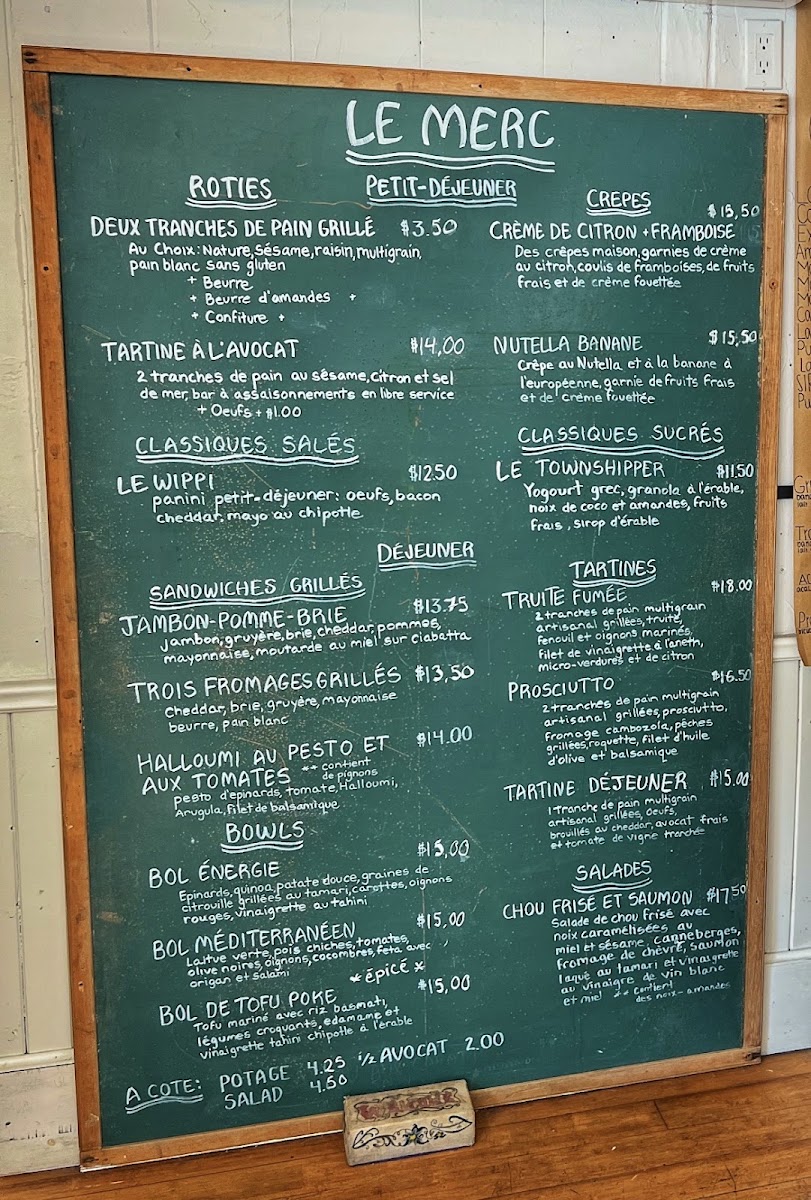 LE MERC
PETIT-DÉJEUNER
ROTIES
DEUX TRANCHES DE PAIN GRILLÉ $3.50
Au Choix: Nature, Sésame, raisin, multigrain,
pain blanc sans gluten
+ Beurre
+ Beurre d'amandes +
+ Confiture +
TARTINE À L'AVOCAT $14,00
2 tranches de pain au sésame, citron et sel
de mer, bar à assaisonnements en libre service
+ Oeufs + $1.00
CREPES
$15,50
CRÈME DE CITRON + FRAMBOISE
Des crêpes maison, garnies de crème
au citron, coulis de framboises, de fruits
frais et de crème fouettée
NUTELLA BANANE $15,50
Crêpe au Nutella et à la banane à
l'européenne, garnie de fruits frais
et de crème fouettée
CLASSIQUES SALÉS
LE WIPPI $12.50
panini petit-déjeuner: oeufs, bacon
cheddar, mayo au chipotle
CLASSIQUES SUCRÉS
LE TOWNSHIPPER $11.50
Yogourt grec, granola à l'érable,
noix de coco et amandes, fruits
frais, sirop d'érable
DÉJEUNER
SANDWICHES GRILLÉS
JAMBON-POMME-BRIE $13.75
jambon, gruyère, brie, cheddar, pommes,
mayonnaise, moutarde au miel sur ciabatta
TROIS FROMAGES GRILLÉS $13,50
cheddar, brie, gruyère, mayonnaise
beurre, pain blanc
HALLOUMI AU PESTO ET $14.00
AUX TOMATES ** contient
de pignons
pesto d'epinards, tomate, Halloumi,
Arugula, filet de balsamique
BOWLS
BOL ÉNERGIE $15,00
Epinards, quinoa, patate douce, graines de
citrouille grillées au tamari, carottes, oignons
rouges, vinaigrette au tahini
BOL MÉDITERRANÉEN $15,00
Laitue verte, pois chiches, tomates,
olive noires, oignons, cocombres, feta avec
origan et salami
*épicé*
BOL DE TOFU POKE $15,00
Tofu mariné avec riz basmati,
légumes croquants, edamame et
vinaigrette tahini chipotle à l'érable
TARTINES
TRUITE FUMÉE $18.00
2 tranches de pain multigrain
artisanal grillées, truite,
fenouil et oignons marinés,
filet de vinaigrette à l'aneth,
micro-verdures et de citron
PROSCIUTTO $16.50
2 tranches de pain multigrain
artisanal grillées, prosciutto,
fromage cambozola, pêches
grillées, roquette, filet d'huile
d'olive et balsamique
TARTINE DÉJEUNER $15.00
1 tranche de pain multigrain
artisanal grillées, Oeufs,
brouillés au cheddar, avocat frais
et tomate de vigne tranchée
SALADES
CHOU FRISÉ ET SAUMON $17.50
Salade de chou frisé avec
noix caramélisées au
miel et sésame, canneberges,
fromage de chèvre, saumon
laqué au tamari et vinaigrette
au vinaigre de vin blanc
et miel ** contient
des noix-amandes
A COTE: POTAGE 4.25 1/2 AVOCAT 2.00
SALAD 4.50